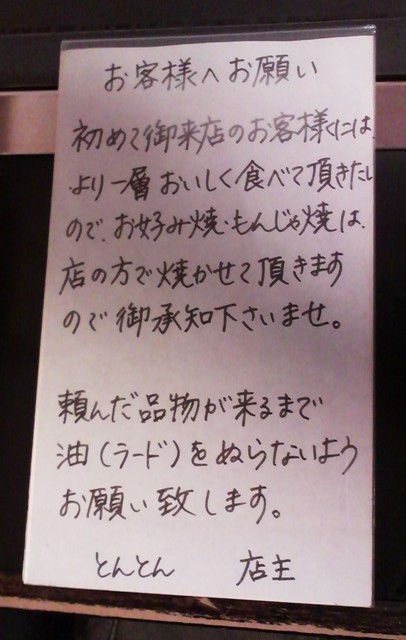 お客様へお願い
初めて御来店のお客様には、
より一層おいしく食べて頂きたい
ので、お好み焼・もんじゃ焼は、
店の方で焼かせて頂きます
ので御承知下さいませ。
頼んだ品物が来るまで
油(ラード)をぬらないよう
お願い致します。
とんとん 店主